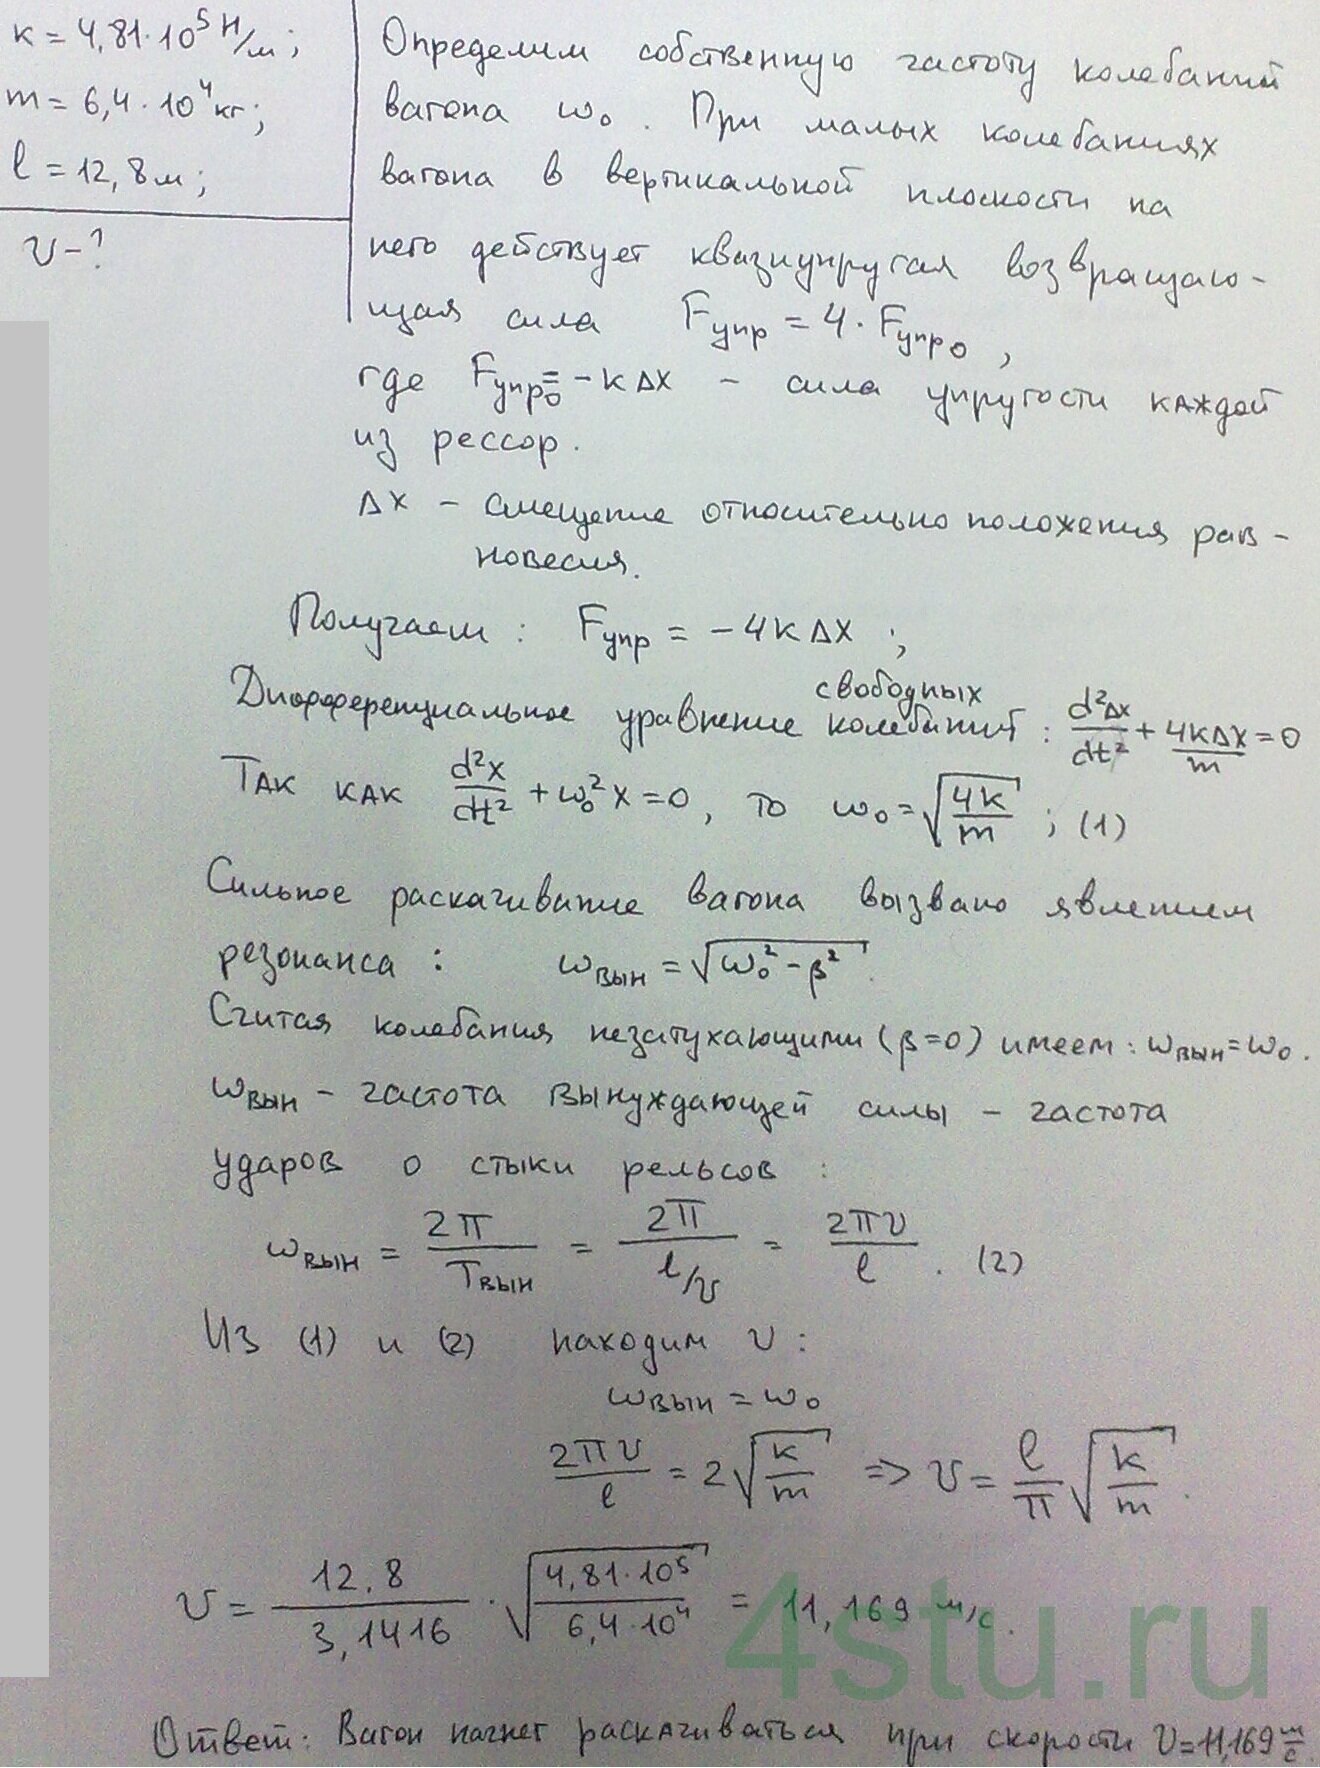 к = 4,81·10⁵ Н/м;
m = 6,4·10⁴ кг;
l = 12,8 м;
v - ?
Определим собственную частоту колебаний
вагона ω₀. При малых колебаниях
вагона в вертикальной плоскости на
него действует квазиупругая возвращаю-
щая сила Fупр = 4·Fупр₀,
где Fупр₀ = -кΔx - сила упругости каждой
из рессор.
Δx - смещение относительно положения рав-
новесия.
Получаем: Fупр = -4кΔx;
свободных
Дифференциальное уравнение колебаний: d²Δx/dt² + 4кΔx/m = 0
Так как d²x/dt² + ω₀²x = 0, то ω₀ = √(4к/m); (1)
Сильное раскачивание вагона вызвано явлением
резонанса: ωвын = √(ω₀² - β²).
Считая колебания незатухающими (β=0) имеем: ωвын = ω₀.
ωвын - частота вынуждающей силы - частота
ударов о стыки рельсов:
ωвын = 2π/Tвын = 2π/(l/v) = 2πv/l. (2)
Из (1) и (2) находим v:
ωвын = ω₀
2πv/l = 2√(к/m) => v = l/π √(к/m).
v = 12,8/3,1416 · √(4,81·10⁵/6,4·10⁴) = 11,169 м/с.
4stu.ru
Ответ: Вагон начнет раскачиваться при скорости v=11,169 м/с.